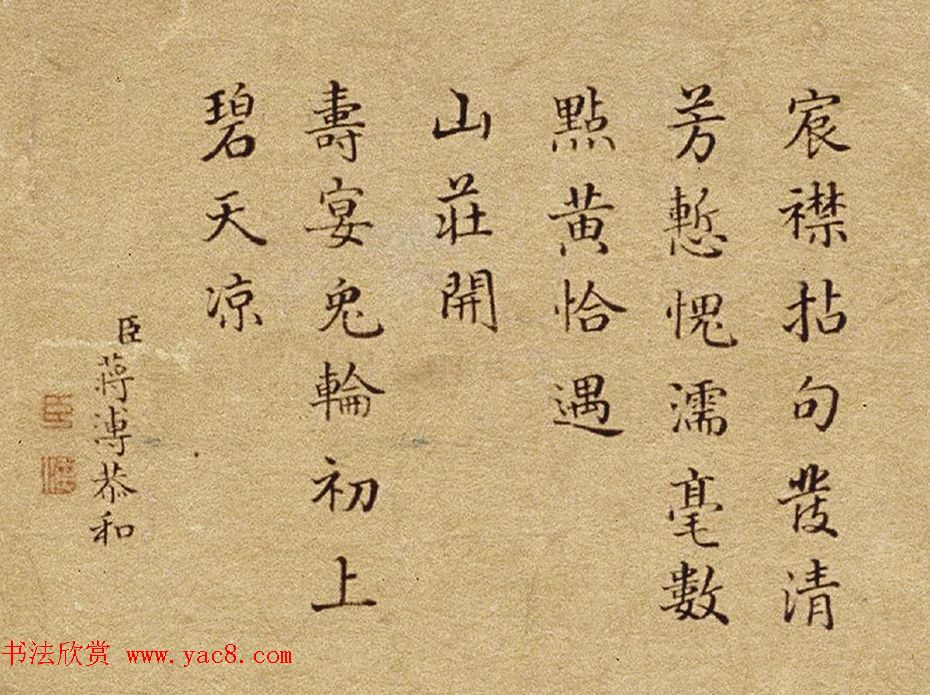 宸襟拈句發清
芳慙愧濡毫數
點黄恰遇
山莊開
壽宴兔輪初上
碧天凉
臣蔣溥恭和
臣
溥
书法欣赏 www.yac8.com